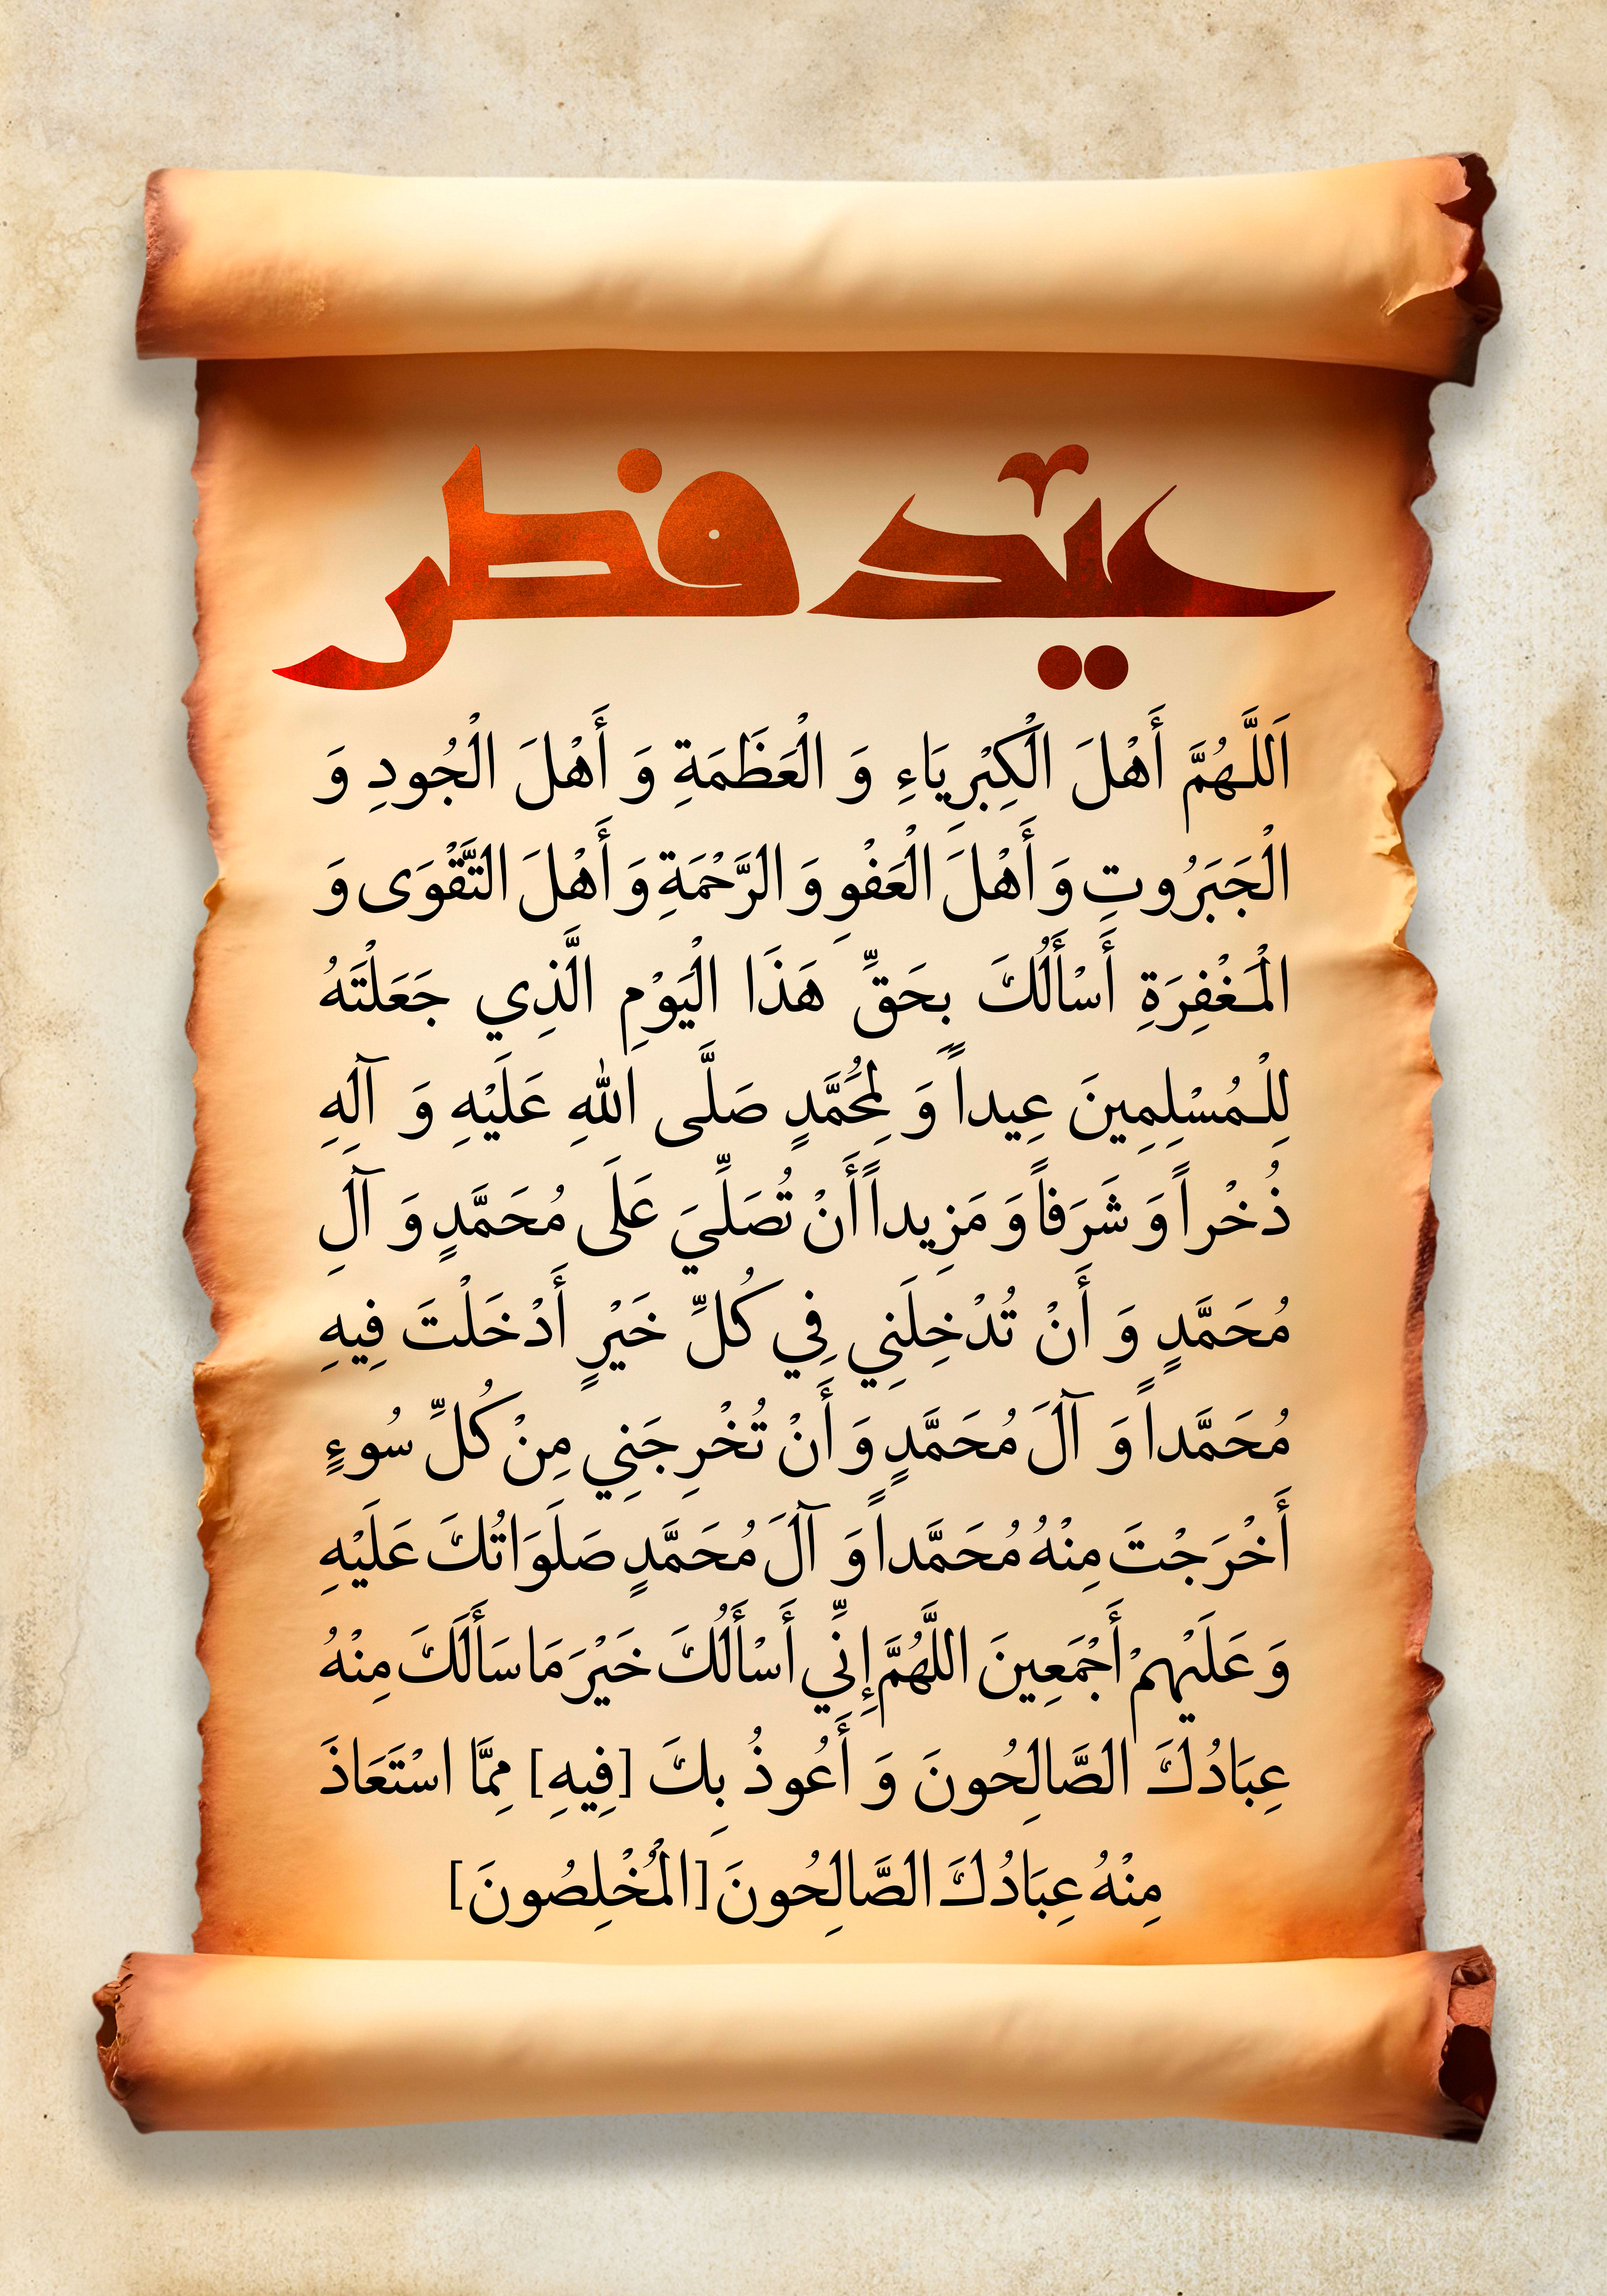 عید فطر
اَللَّـهُمَّ أَهْلَ الْكِبْرِيَاءِ وَ الْعَظَمَةِ وَ أَهْلَ الْجُودِ وَ
الْجَبَرُوتِ وَ أَهْلَ الْعَفْوِ وَ الرَّحْمَةِ وَ أَهْلَ التَّقْوَى وَ
الْمَـغْفِرَةِ أَسْأَلُكَ بِحَقِّ هَذَا الْيَوْمِ الَّذِي جَعَلْتَهُ
لِلْـمُسْلِمِينَ عِيداً وَ لِمُحَمَّدٍ صَلَّى اللهِ عَلَيْهِ وَ آلِهِ
ذُخْراً وَ شَرَفاً وَ مَزِيداً أَنْ تُصَلِّيَ عَلَى مُحَمَّدٍ وَ آلِ
مُحَمَّدٍ وَ أَنْ تُدْخِلَنِي فِي كُلِّ خَيْرٍ أَدْخَلْتَ فِيهِ
مُحَمَّداً وَ آلَ مُحَمَّدٍ وَ أَنْ تُخْرِجَنِي مِنْ كُلِّ سُوءٍ
أَخْرَجْتَ مِنْهُ مُحَمَّداً وَ آلَ مُحَمَّدٍ صَلَوَاتُكَ عَلَيْهِ
وَ عَلَيْهِمْ أَجْمَعِينَ اللَّهُمَّ إِنِّي أَسْأَلُكَ خَيْرَ مَا سَأَلَكَ مِنْهُ
عِبَادُكَ الصَّالِحُونَ وَ أَعُوذُ بِكَ [فِيهِ] مِمَّا اسْتَعَاذَ
مِنْهُ عِبَادُكَ الصَّالِحُونَ [الْمُخْلِصُونَ]